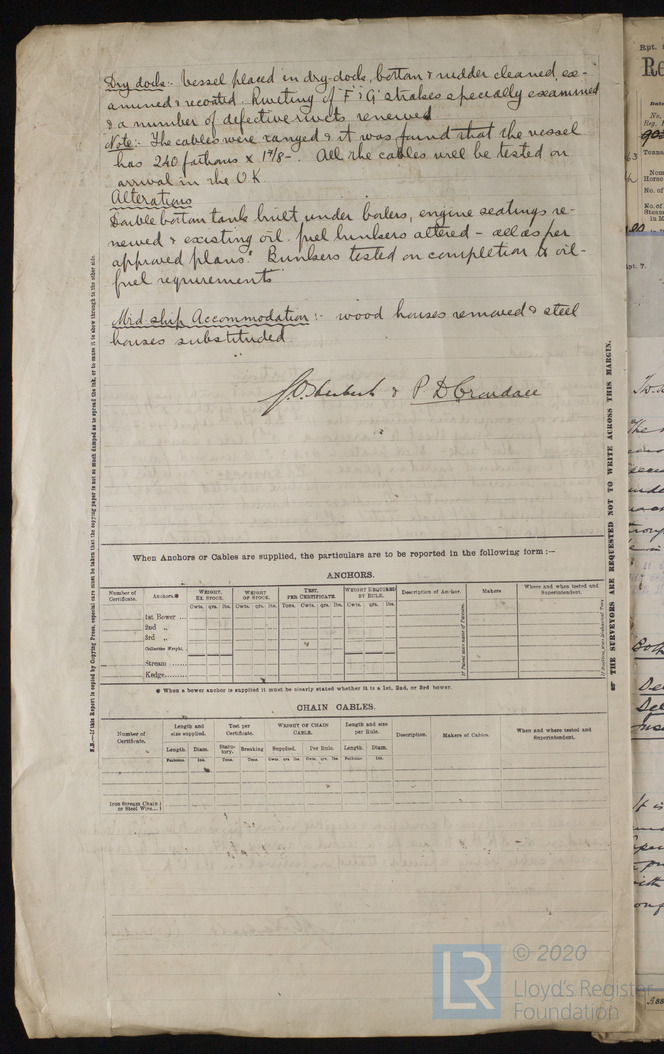 Dry dock:- Vessel placed in dry-dock, bottom & rudder cleaned, ex-
amined & recoated. Riveting of 'F' & 'G' strakes specially examined
& a number of defective rivets renewed
Note:- The cables were ranged & it was found that the vessel
has 240 fathoms x 1 7/8-. All the cables will be tested on
arrival in the U.K.
Alterations
Double bottom tank built under boilers, engine seatings re-
newed & existing oil fuel bunkers altered - all as per
approved plans. Bunkers tested on completion to oil-
fuel requirements
Midship Accommodation:- wood houses removed & steel
houses substituted
& P D Crandall
When Anchors or Cables are supplied, the particulars are to be reported in the following form :—
ANCHORS.
Number of Certificate. Anchors.* WEIGHT, EX. STOCK. WEIGHT OF STOCK. TEST, PER CERTIFICATE. WEIGHT REQUIRED BY RULE. Description of Anchor. Makers Where and when tested and Superintendent.
Cwts. qrs. lbs. Cwts. qrs. lbs. Tons. Cwts. qrs. lbs. Cwts. qrs. lbs.
1st Bower ...
2nd „
3rd „
Collective Weight.
Stream ......
Kedge........
* When a bower anchor is supplied it must be clearly stated whether it is a 1st. 2nd, or 3rd bower.
CHAIN CABLES.
Number of Certificate. Length and size supplied. Test per Certificate. WEIGHT OF CHAIN CABLE. Length and size per Rule. Description. Makers of Cables. When and where tested and Superintendent.
Length. Diam. Statutory. Breaking Supplied. Per Rule. Length. Diam.
Fathoms. Ins. Tons. Tons. Cwts. qrs. lbs. Cwts. qrs. lbs. Fathoms Ins.
Iron Stream Chain
or Steel Wire...
N.B.—If this Report is copied by Copying Press, especial care must be taken that the copying paper is not so much damped as to spread the ink, or to cause it to show through to the other side.
THE SURVEYORS ARE REQUESTED NOT TO WRITE ACROSS THIS MARGIN.
LR
© 2020
Lloyd's Register
Foundation